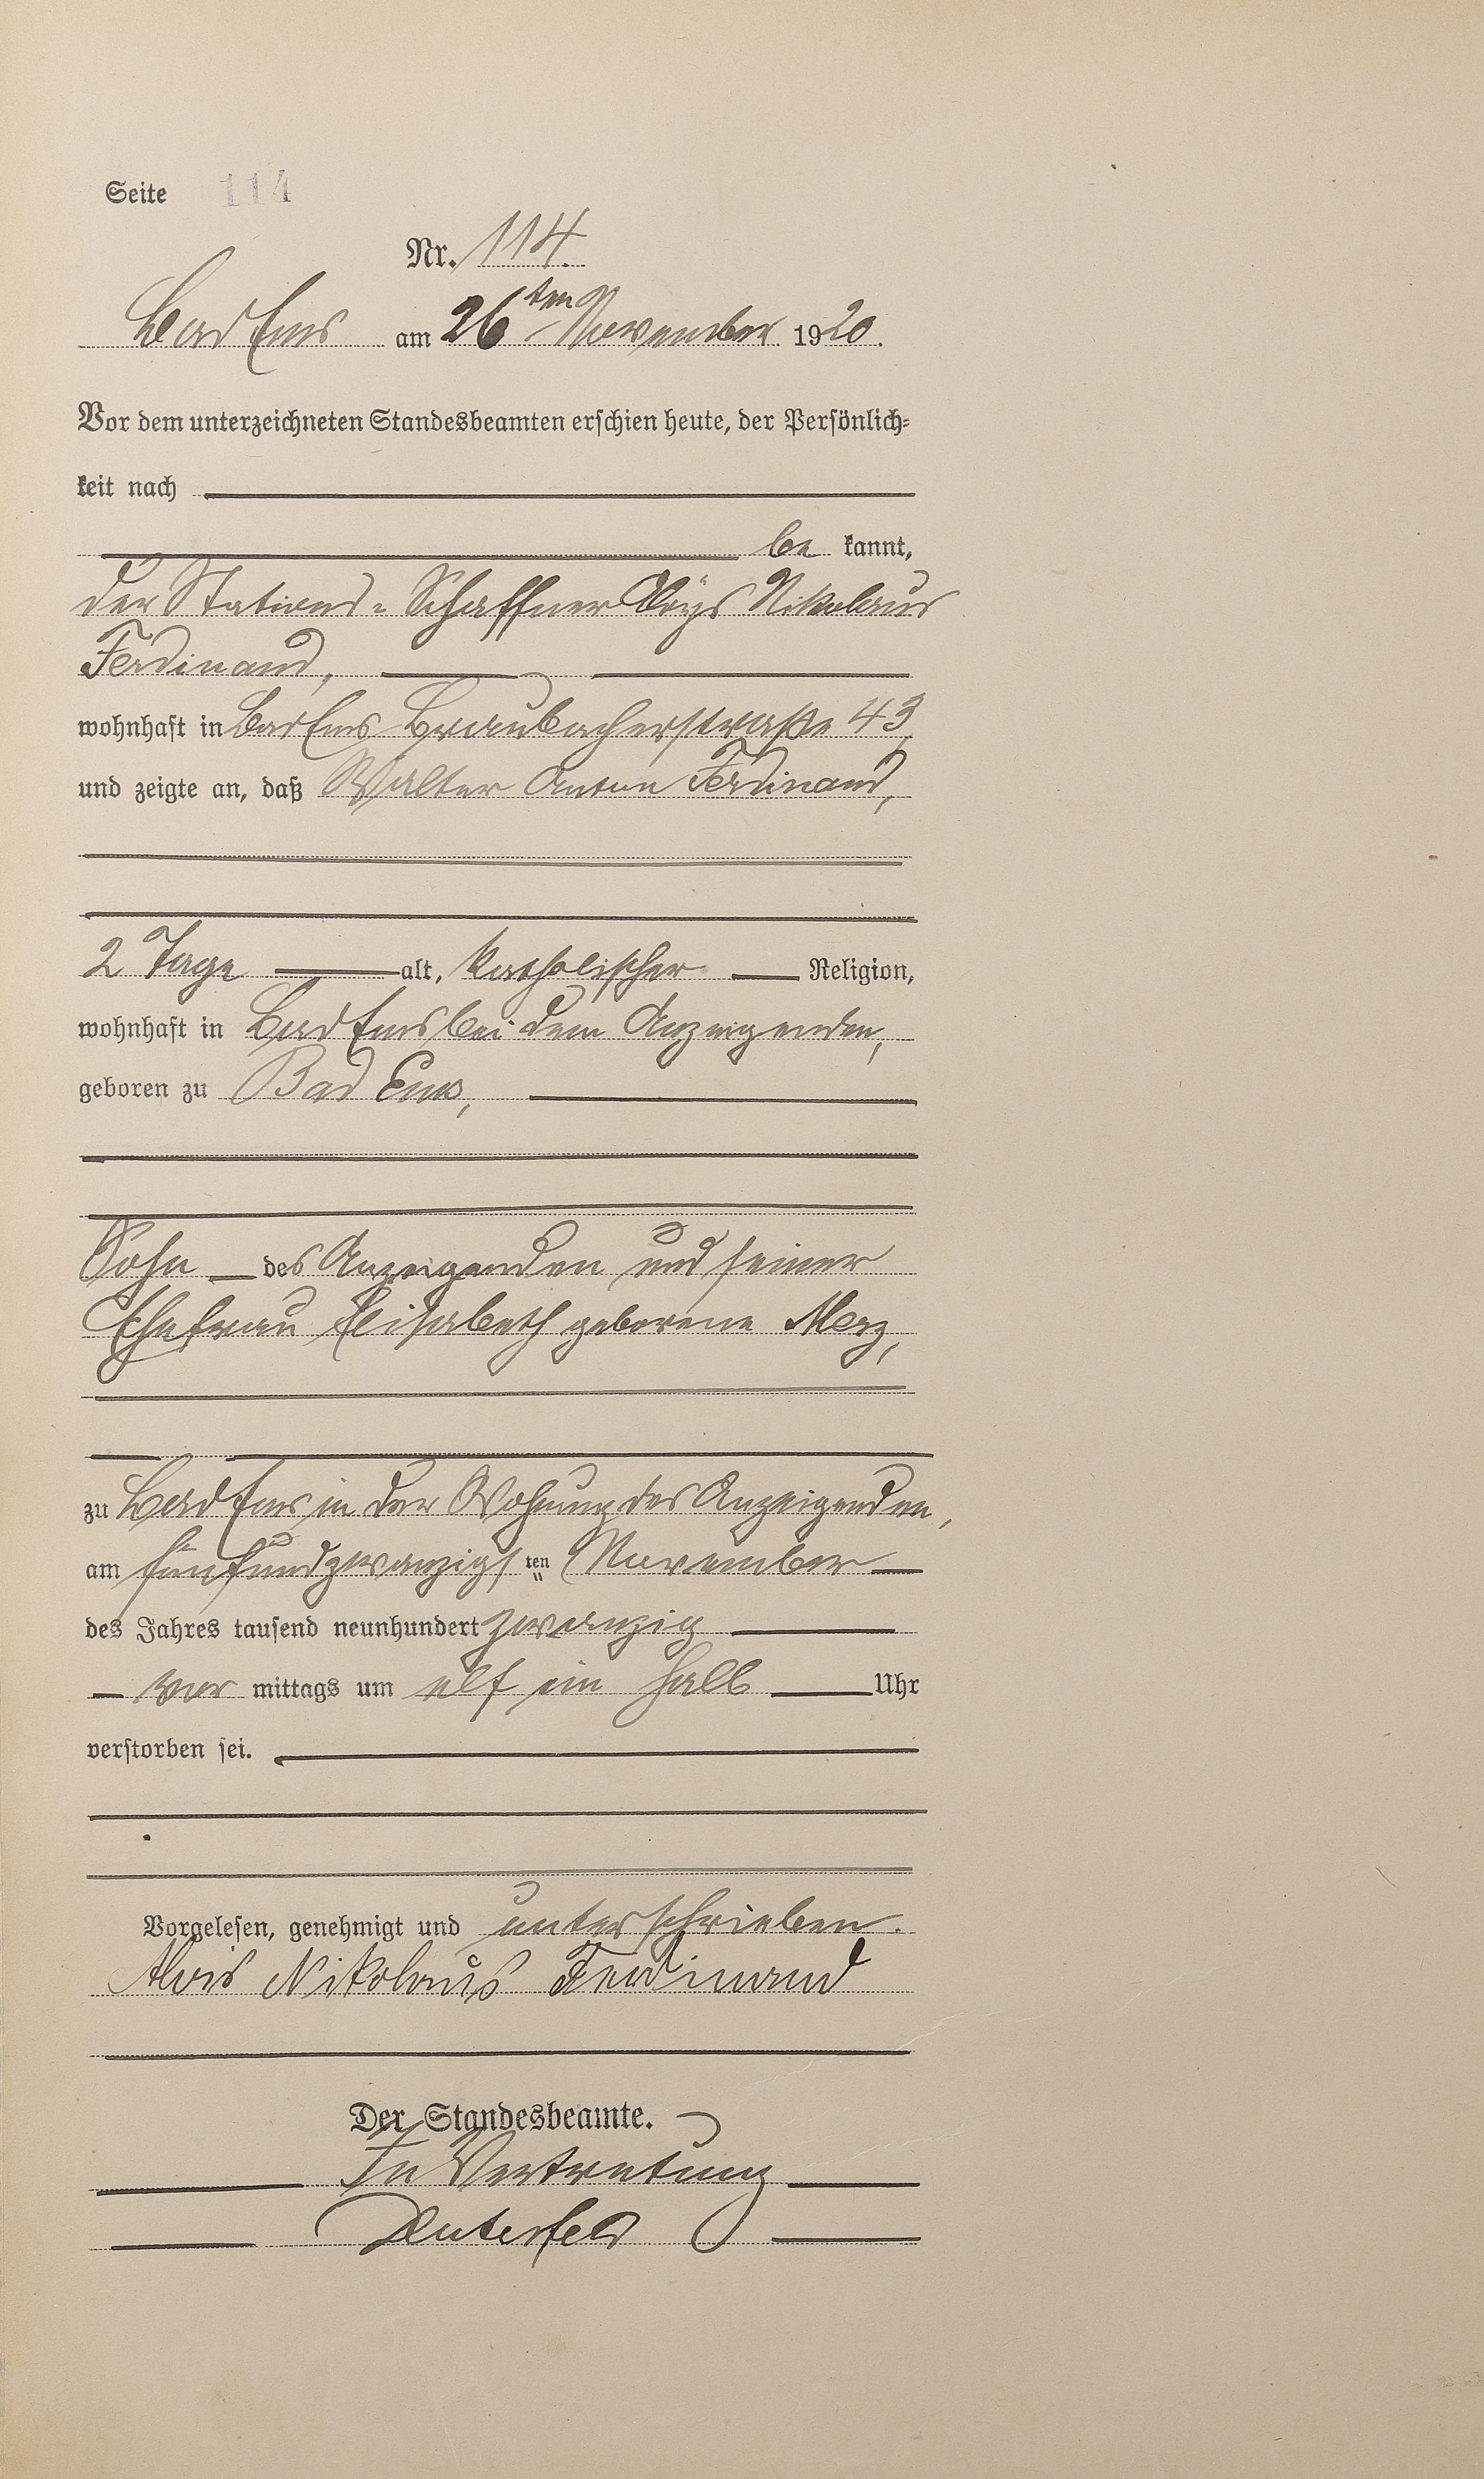 Seite 114
Nr. 114.
Bad Ems am 26ten November 1920.
Vor dem unterzeichneten Standesbeamten erschien heute, der Persönlich-
keit nach
be kannt,
der Stations-Schaffner Aloys Nikolaus
Ferdinand,
wohnhaft in Bad Ems Braubacherstraße 43,
und zeigte an, daß Walter Anton Ferdinand,
2 Tage alt, katholischer Religion,
wohnhaft in Bad Ems bei dem Anzeigenden,
geboren zu Bad Ems,
Sohn des Anzeigenden und seiner
Ehefrau Elisabeth geborene Merz,
zu Bad Ems in der Wohnung des Anzeigenden,
am fünfundzwanzigsten November
des Jahres tausend neunhundert zwanzig
vor mittags um elf ein halb Uhr
verstorben sei.
Vorgelesen, genehmigt und unterschrieben.
Alois Nikolaus Ferdinand
Der Standesbeamte.
In Vertretung